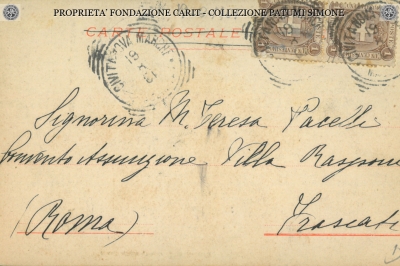 PROPRIETA' FONDAZIONE CARIT - COLLEZIONE PATUMI SIMONE
CARTOLINA POSTALE
CIVITANOVA MARCHE
Signorina M. Teresa Pacelli
Convento Assunzione Villa Rasponi
(Roma) Frascati